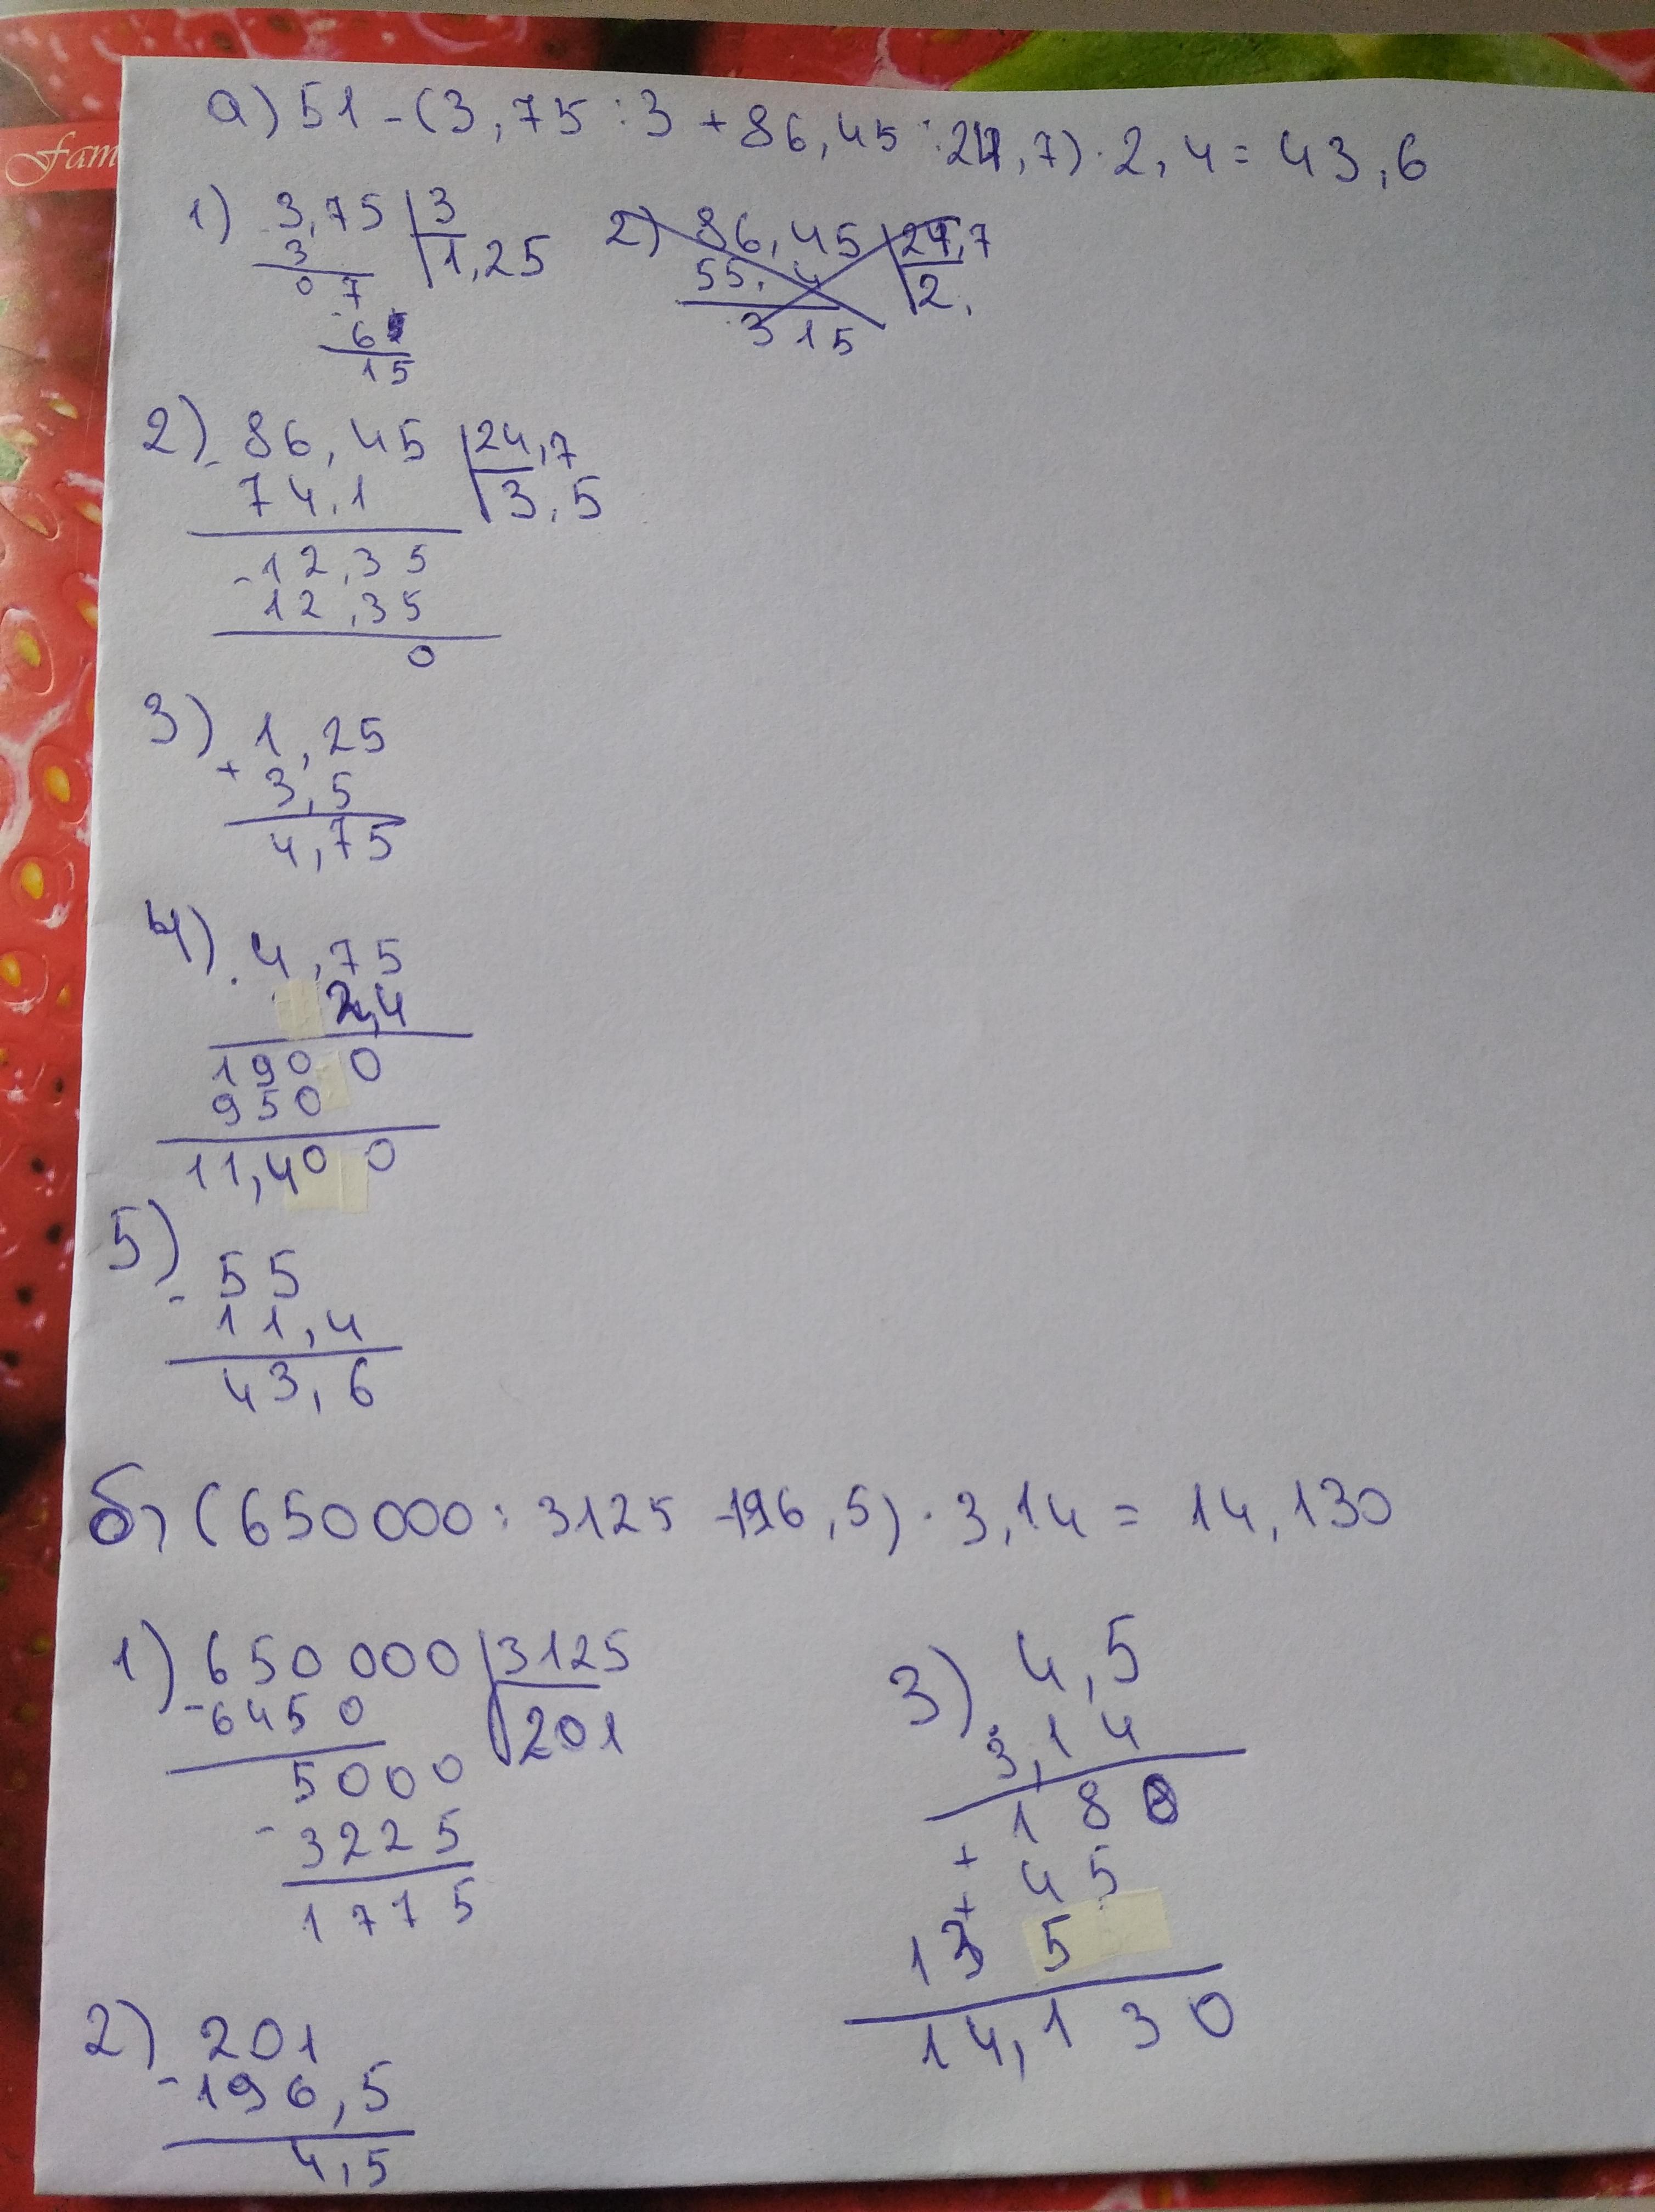 Fam
а) 51 - (3,75 : 3 + 86,45 : 24,7) · 2,4 = 43,6
1) 3,75 | 3
3 | 1,25
0 7
6
15
2) 86,45 | 24,7
55,4 | 2,
315
2) - 86,45 | 24,7
74,1 | 3,5
- 12,35
12,35
0
3) + 1,25
3,5
4,75
4) · 4,75
2,4
190 0
950
11,40 0
5) - 55
11,4
43,6
б) (650000 : 3125 - 196,5) · 3,14 = 14,130
1) - 650 000 | 3125
6450 | 201
5000
- 3225
1775
2) - 201
196,5
4,5
3) 4,5
3,14
180
+ 45
+ 135
14,130